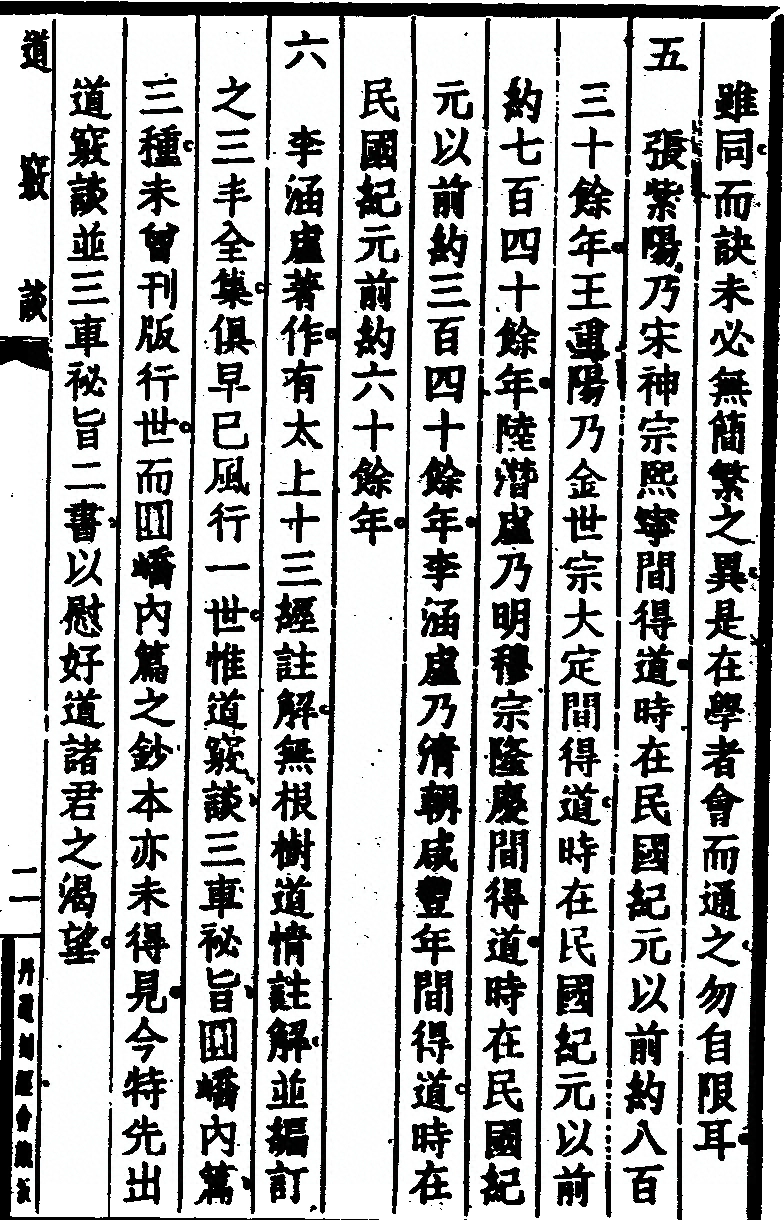 雖同而訣未必無簡繁之異是在學者會而通之勿自限耳
五　張紫陽乃宋神宗熙寧間得道時在民國紀元以前約八百
三十餘年王重陽乃金世宗大定間得道時在民國紀元以前
約七百四十餘年陸潛虛乃明穆宗隆慶間得道時在民國紀
元以前約三百四十餘年李涵虛乃清朝咸豐年間得道時在
民國紀元前約六十餘年
六　李涵虛著作有太上十三經註解無根樹道情註解並編訂
之三丰全集俱早已風行一世惟道竅談三車祕旨圓嶠內篇
三種未曾刊版行世而圓嶠內篇之鈔本亦未得見今特先出
道竅談並三車祕旨二書以慰好道諸君之渴望
道竅談　二　丹道刻經會